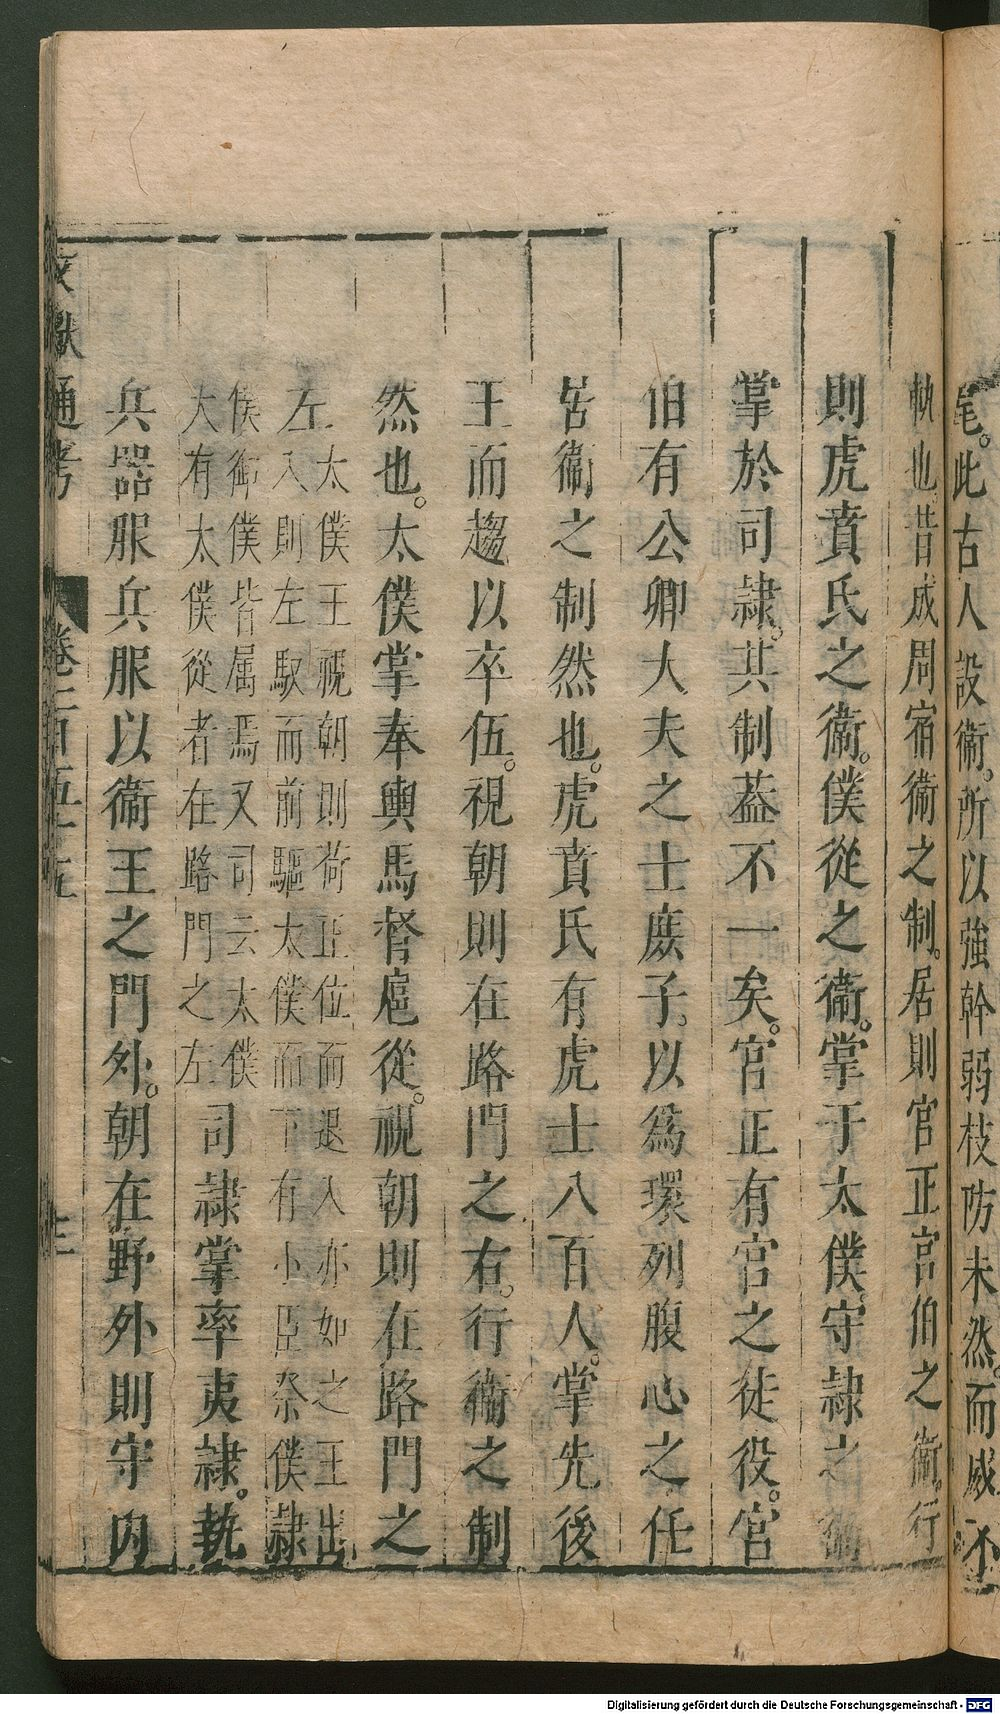 尾。此古人設衞。所以強幹弱枝防未然。而威不
執也昔成周宿衞之制。居則宫正宫伯之衞。行
則虎賁氏之衞。僕從之衞。掌于太僕。守隷之衞
掌於司隷。其制葢不一矣。宫正有宫之徒役。宫
伯有公卿大夫之士庶子。以爲環列腹心之任
居衞之制然也。虎賁氏有虎士八百人。掌先後
王而趨以卒伍。視朝則在路門之右。行衞之制
然也。太僕掌奉輿馬督扈從。視朝則在路門之
左太僕王視朝則荷正位而退入亦如之王出
入則左馭而前驅太僕而下有小臣祭僕隷
僕御僕皆属焉又司云太僕
大有太僕從者在路門之左司隷掌率夷隷。執
兵器服兵服以衞王之門外。朝在野外則守内
文獻通考 卷一百五十五 十三
Digitalisierung gefördert durch die Deutsche Forschungsgemeinschaft - DFG